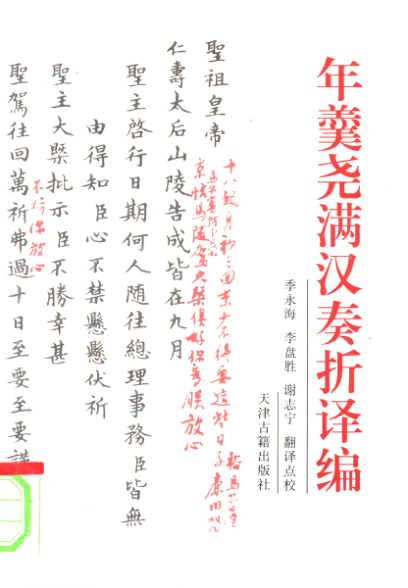 年羹尧满汉奏折译编
季永海 李盘胜 谢志宁 翻译点校
天津古籍出版社
聖祖皇帝
仁壽太后山陵告成皆在九月
聖主啓行日期何人随往總理事務臣皆無
由得知臣心不禁懸懸伏祈
聖主大槩批示臣不勝幸甚
聖駕往回萬祈弗過十日至要至要謹
十八起身初二回
要這些日子
大槩俱好
放心
你放心